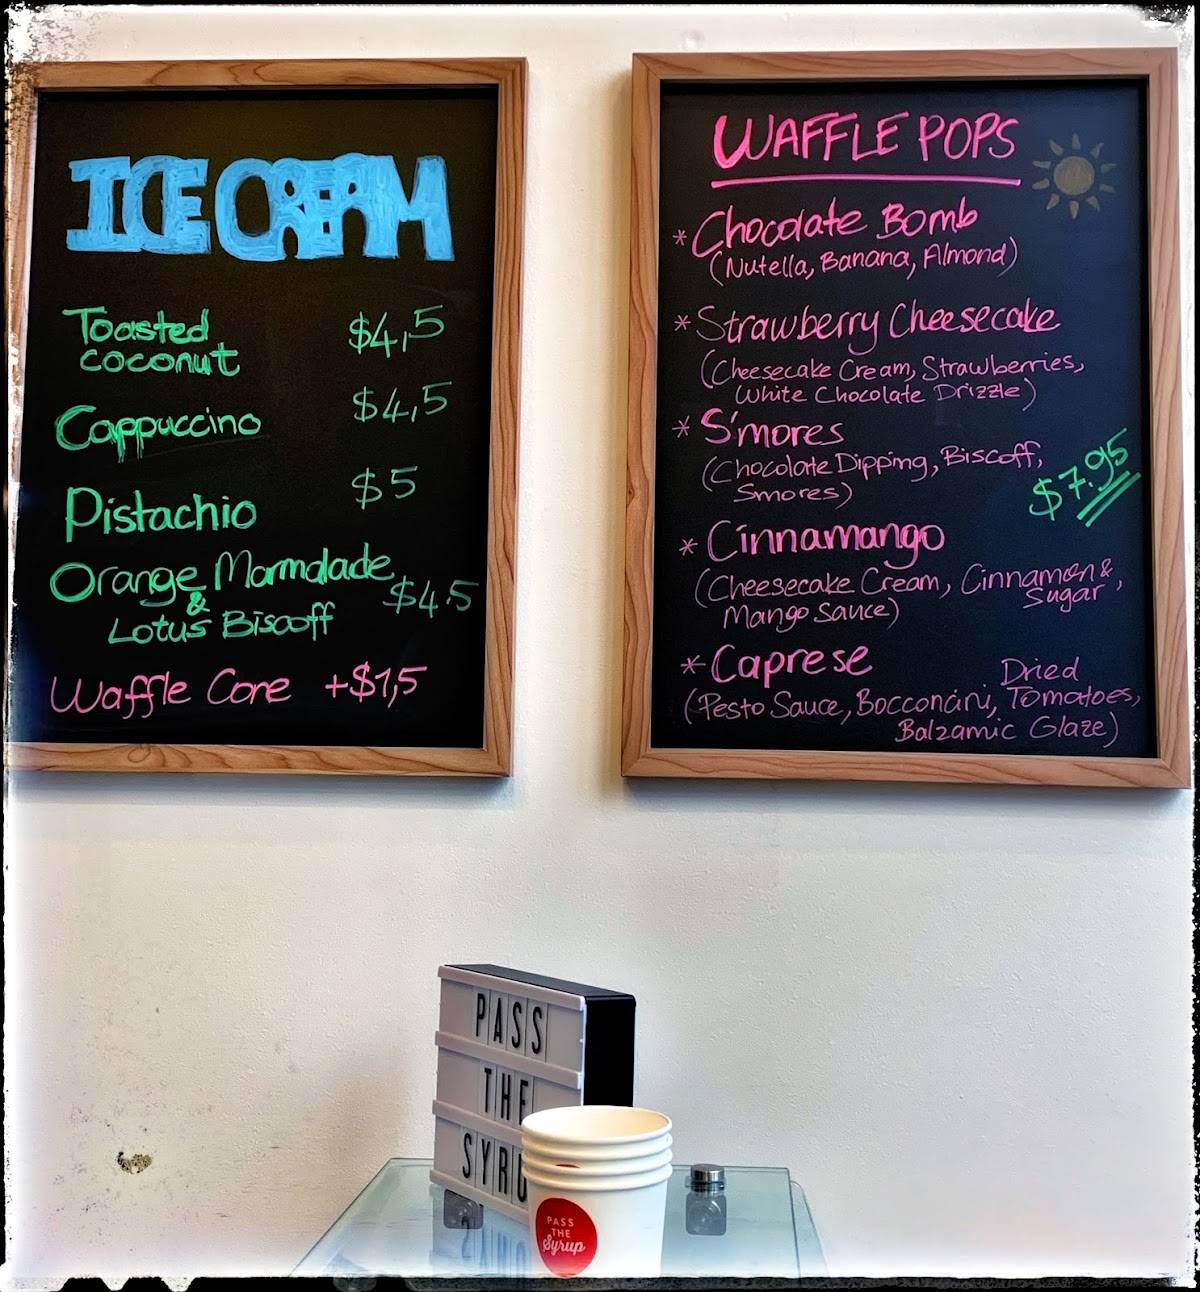 ICE CREAM
Toasted
coconut $4,5
Cappuccino $4,5
Pistachio $5
Orange Marmalade
& $4,5
Lotus Biscoff
Waffle Cone +$1,5
WAFFLE POPS
* Chocolate Bomb
(Nutella, Banana, Almond)
* Strawberry Cheesecake
(Cheesecake Cream, Strawberries,
White Chocolate Drizzle)
* S'mores
(Chocolate Dipping, Biscoff,
Smores)
$7.95
* Cinnamango
(Cheesecake Cream, Cinnamon &
Sugar,
Mango Sauce)
* Caprese
(Pesto Sauce, Bocconcini, Dried
Tomatoes,
Balzamic Glaze)
PASS
THE
SYRU
PASS
THE
Syrup